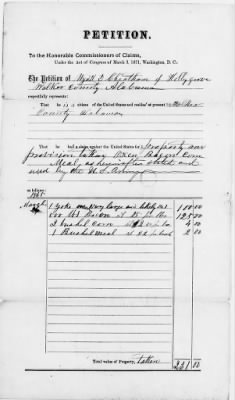 PETITION.
To the Honorable Commissioners of Claims,
Under the Act of Congress of March 3, 1871, Washington, D. C.:
The Petition of Wyatt D Cheatham of Hollygrove
Walker County Alabama
respectfully represents:
That he is a citizen of the United States and resident at present
County Alabama
That he had a claim against the United States for property and
provision taken Oxen Bacon corn
Meal, as hereinafter stated and
used by the U S Army
as follows:
1865
March 1 Yoke very large and likely oxen 100 00
lbs Bacon at 25 pr lbs 125 00
2 bushel Corn at $2 pr bu 4 00
1 Bushel meal at $2 pr bush 2 00
Total value of Property, taken 231 00